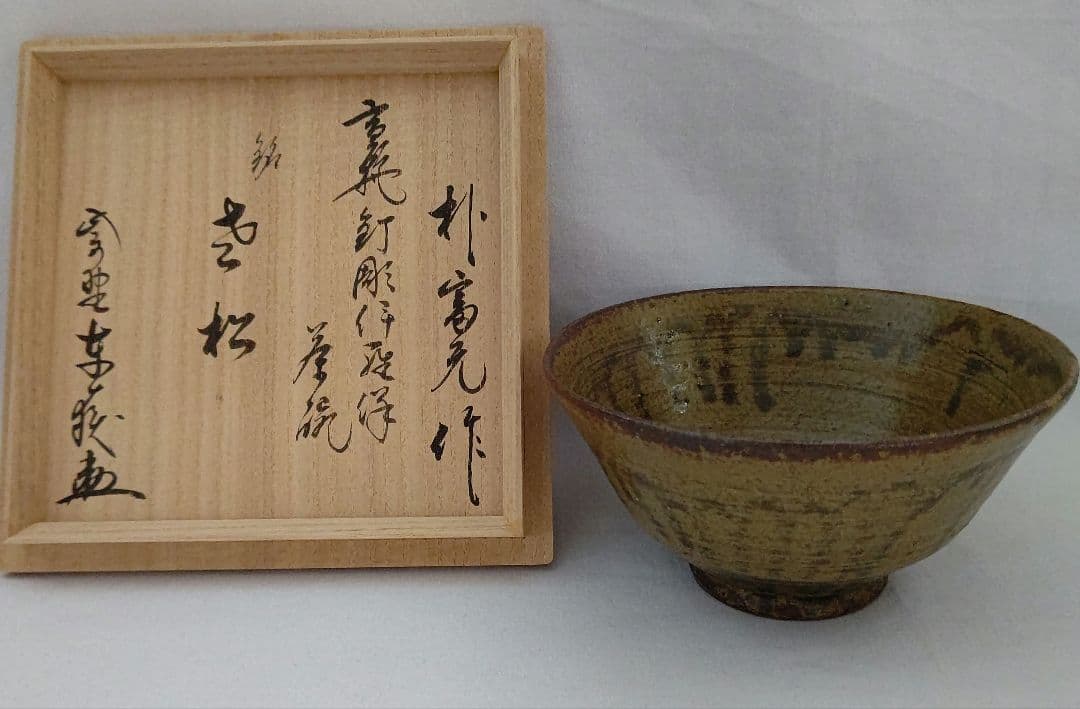 朴富元作
高麗釘彫伊羅保
茶碗
銘
老松
紫野